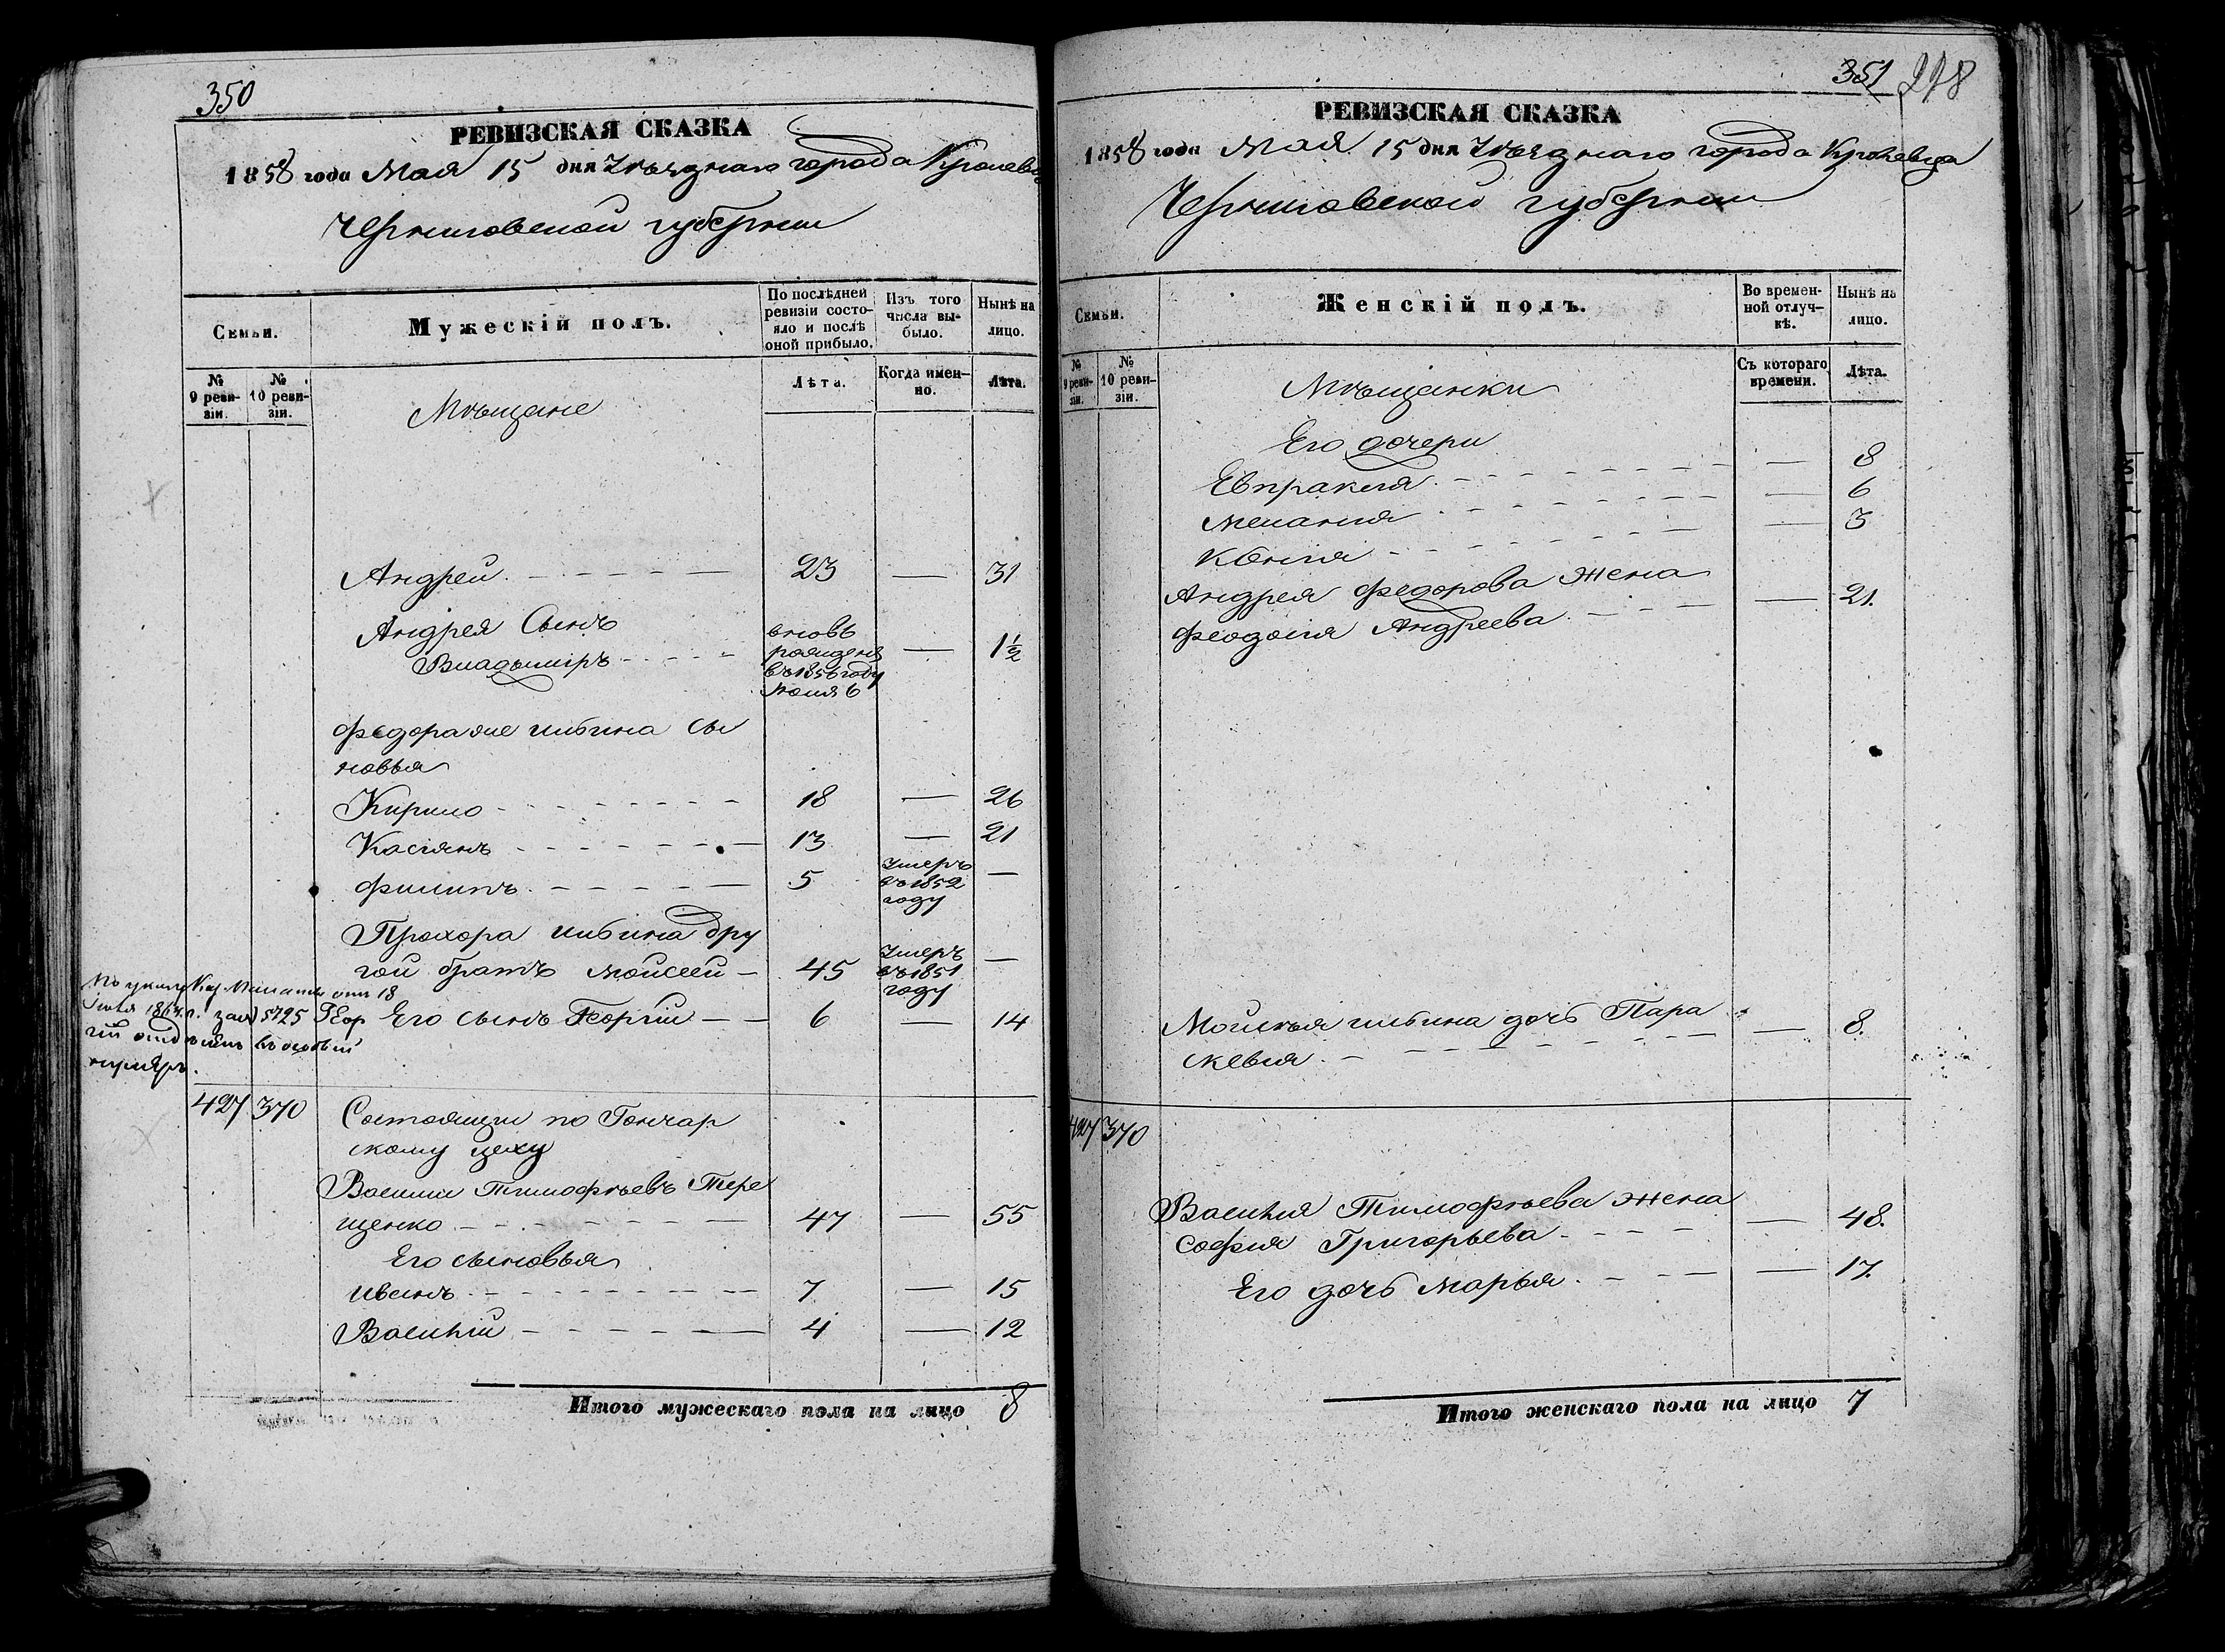 350
РЕВИЗСКАЯ СКАЗКА
1858 года Мая 15 дня Уѣзднаго города Кролевца
Черниговской губернии
Семьи.
Мужескій полъ.
По послѣдней ревизіи состояло и послѣ оной прибыло.
Изъ того числа выбыло.
Нынѣ на лицо.
№ 9 ревизіи.
№ 10 ревизіи.
Мѣщане
Лѣта.
Когда именно.
Лѣта.
Андрей 23 — 31
Андрея Сынъ
Владымиръ вновь рожденъ въ 1856 году Июля 6 — 1½
Федора же Сы
новья
Кирило 18 — 26
Касіянъ 13 — 21
Филипъ 5 Умеръ въ 1852 году —
Прохора дру
гой братъ Мойсей 45 Умеръ въ 1851 году —
Его сынъ Георгій 6 — 14
По указу Каз. Палаты отъ 18
Іюля 186 г. за № 5725 Геор
гій отдѣленъ въ особый
нумеръ.
427 370 Состоящии по Гончар
скому цеху
Василий Тимофѣевъ Тере
щенко 47 — 55
Его сыновья
Иванъ 7 — 15
Василій 4 — 12
Итого мужескаго пола на лицо 8
351 278
РЕВИЗСКАЯ СКАЗКА
1858 года Мая 15 дня Уѣзднаго города Кролевца
Черниговской губернии
Семьи.
Женскій полъ.
Во временной отлучкѣ.
Нынѣ на лицо.
№ 9 ревизіи.
№ 10 ревизіи.
Мѣщанки
Съ котораго времени.
Лѣта.
Его дочери
Евпраксия — 8
Мелания — 6
Ксения — 3
Андрея Федорова жена
Феодосия Андреева — 21.
Мойсея дочь Пара
скевия — 8.
427 370
Василия Тимофѣева жена
София Григорьева — 48.
Его дочь Марья — 17.
Итого женскаго пола на лицо 7